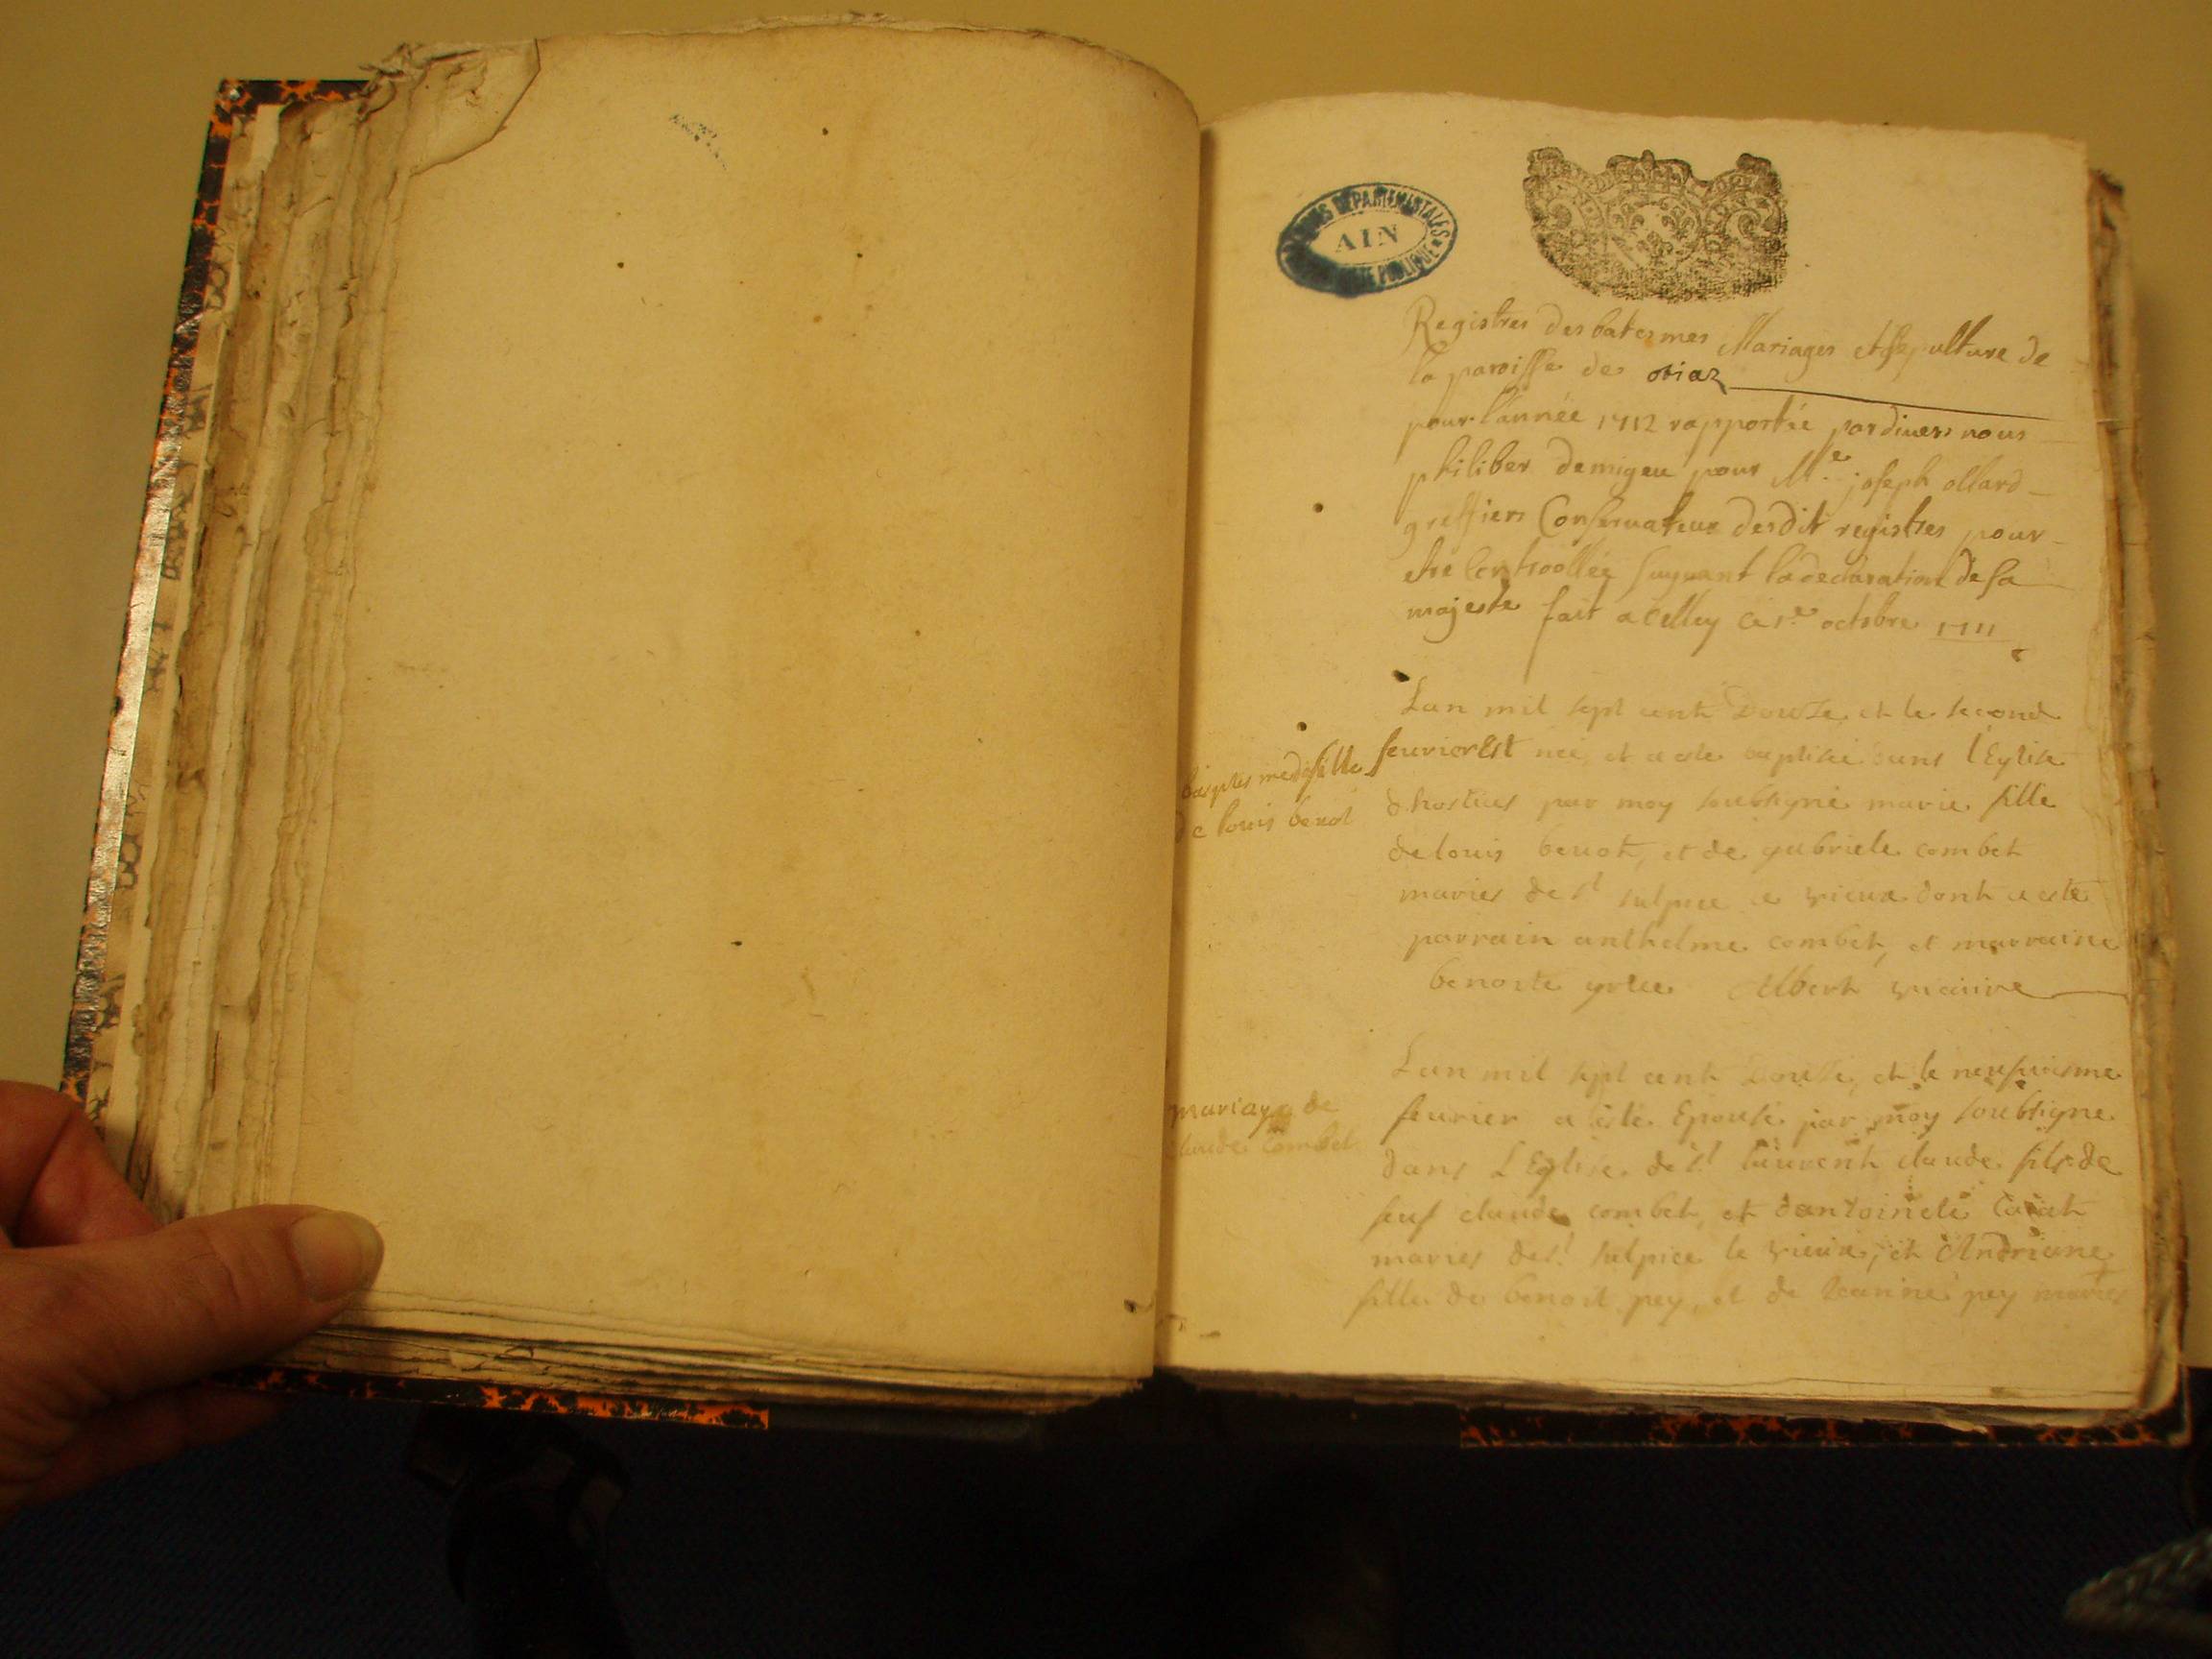 ARCHIVES DEPARTEMENTALES
AIN
PUBLIQUE
Registres des batesmes Mariages et sepulture de
la paroisse de oziaz
pour l'année 1712 rapportée pardivers nous
philiber demigeu pour Me. joseph ollard
greffiers Conservateur desdit registres pour
etre Controollée suyvant la declaration de sa
majeste fait a belley ce 1er octobre 1711
Lan mil sept cent Douze et le second
feurier Est née, et a este baptisée dans l'Eglise
baptesme de fille
de louis benot
dhostiel par moy soubsigné marie fille
de louis benot, et de gabriele combet
maries de st sulpice le vieux dont a esté
parrain anthelme combet, et marraine
benoite Albert vicaire
Lan mil sept cent Douse, et le neufviesme
mariage de
claude Combet
feurier a esté Epousé par moy soubsigne
dans L'Eglise de st laurent claude fils de
feuf claude combet, et dantoinete
maries de st sulpice le vieux, et Andriane
fille de benoit pey, et de Jeanne pey maries